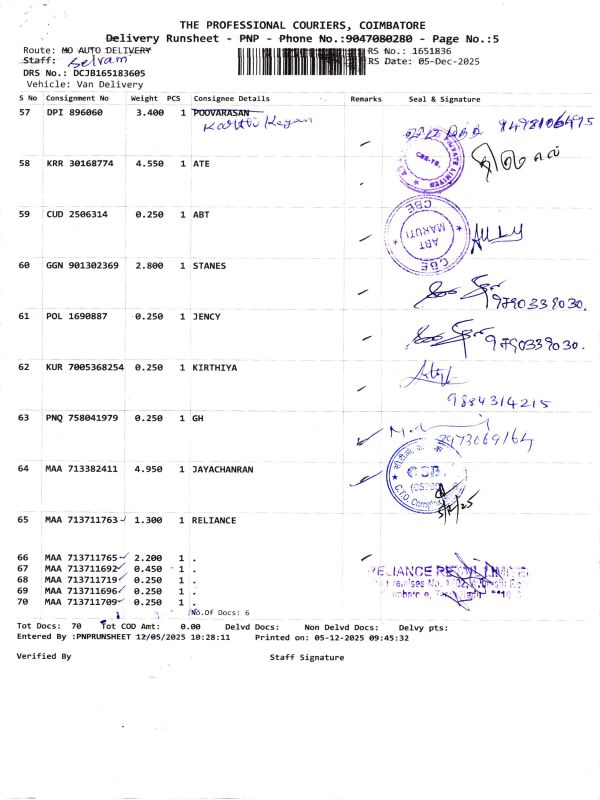 THE PROFESSIONAL COURIERS, COIMBATORE
Delivery Runsheet - PNP - Phone No.:9047080280 - Page No.:5
Route: MO AUTO DELIVERY RS No.: 1651836
Staff: Selvam RS Date: 05-Dec-2025
DRS No.: DCJB165183605
Vehicle: Van Delivery
S No Consignment No Weight PCS Consignee Details Remarks Seal & Signature
57 DPI 896060 3.400 1 POOVARASAN
58 KRR 30168774 4.550 1 ATE
59 CUD 2506314 0.250 1 ABT
ABT MARUTI CBE
60 GGN 901302369 2.800 1 STANES
9790339030.
61 POL 1690887 0.250 1 JENCY
9790339030.
62 KUR 7005368254 0.250 1 KIRTHIYA
9884314215
63 PNQ 758041979 0.250 1 GH
64 MAA 713382411 4.950 1 JAYACHANRAN
65 MAA 713711763 1.300 1 RELIANCE
66 MAA 713711765 2.200 1 .
67 MAA 713711692 0.450 1 .
68 MAA 713711719 0.250 1 .
69 MAA 713711696 0.250 1 .
70 MAA 713711709 0.250 1 .
No.Of Docs: 6
Tot Docs: 70 Tot COD Amt: 0.00 Delvd Docs: Non Delvd Docs: Delvy pts:
Entered By :PNPRUNSHEET 12/05/2025 10:28:11 Printed on: 05-12-2025 09:45:32
Verified By Staff Signature